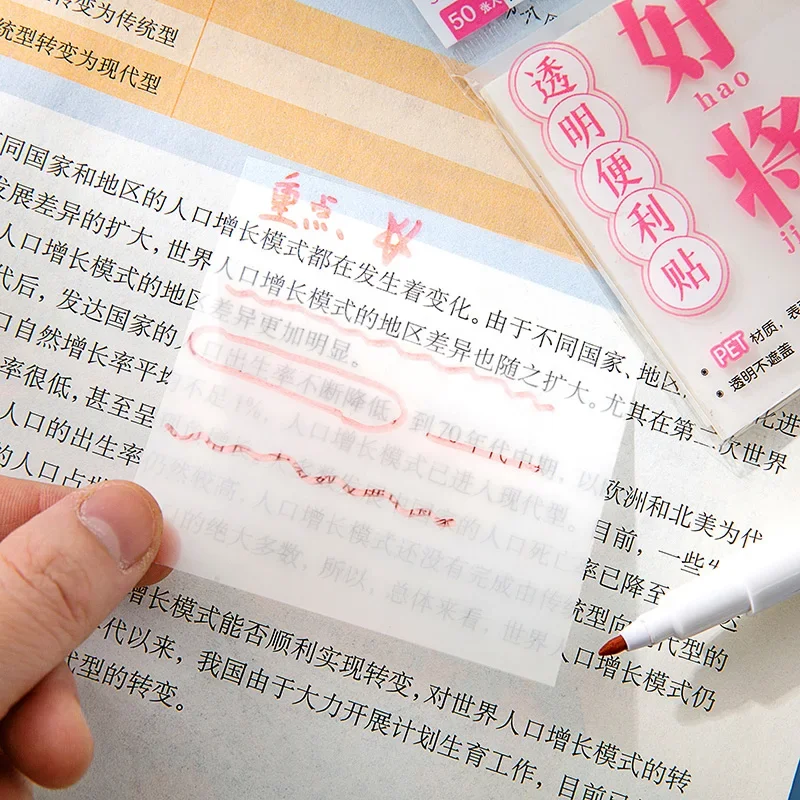 转变为传统型
统型转变为现代型
50张
好
hao
将
透明便利贴
PET材质，
透明不遮盖
重点
同国家和地区的人口增长模式都在发生着变化。由于不同国家、地区
发展差异的扩大，世界人口增长模式的地区差异也随之扩大。尤其在第二次世界
人口增长模式的地区差异更加明显。
代后，发达国家的人口出生率不断降低，到70年代中期，
欧洲和北美为代
口自然增长率平均 不足1%，人口增长模式已进入现代型。目前，一些
率很低，甚至呈
率已降至
人口的出生率仍然较高，人口增长模式还没有完成由传统型向现代型的
的人口占世 的绝大多数，所以，总体来看，世界人口增长模式仍
增长模式能否顺利实现转变，对世界人口增长模式的转
年代以来，我国由于大力开展计划生育工作，目前已
代型的转变。